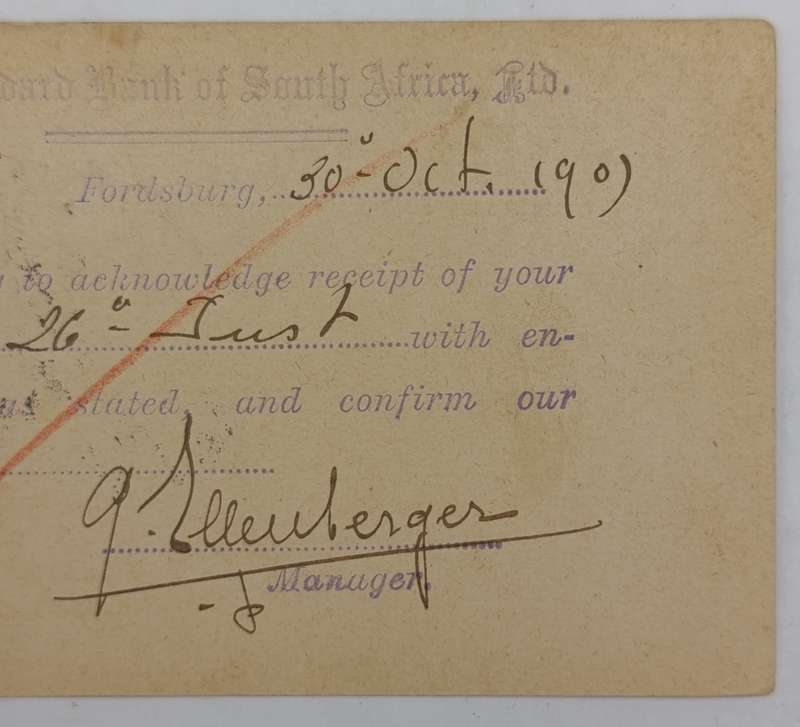 dard Bank of South Africa, Ltd.
Fordsburg, 30" Oct. 1907
to acknowledge receipt of your
26" Inst with en-
stated, and confirm our
Ellenberger
Manager.